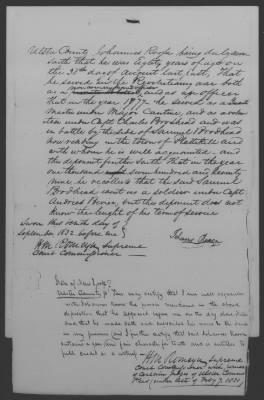 Ulster County Johannes Roosa being duly sworn
saith that he was eighty years of age on
the 30th day of August last past, that
he served in the Revolutionary war both
as a non commissioned officer and as an officer
that in the year 1777 he served as a Quarter
master under Major Cantine, and as a volun
teer under Capt Charles Brodhead and was
in battle by the side of Samuel Brodhead
now residing in the town of Plattekill and
with whom he is well acquainted and
the deponent further saith that in the year
one thousand seven hundred and seventy
nine he recollects that the said Samuel
Brodhead went as a soldier under Capt
but this deponent does not
know the length of his term of service
Sworn this tenth day of
September 1832 before me
H M Romeyn Supreme
Court Commissioner
State of New York
Ulster County ss I do certify that I am well acquainted
with Johannes Roosa the person mentioned in the above
deposition that he appeared before me on the day above
that he made oath and subscribed his name to the same
in my presence and I further certify that said Johannes Roosa
sustains a good character for truth and is entitled to
full credit as a witness
H M Romeyn Supreme
Court
of Ulster County